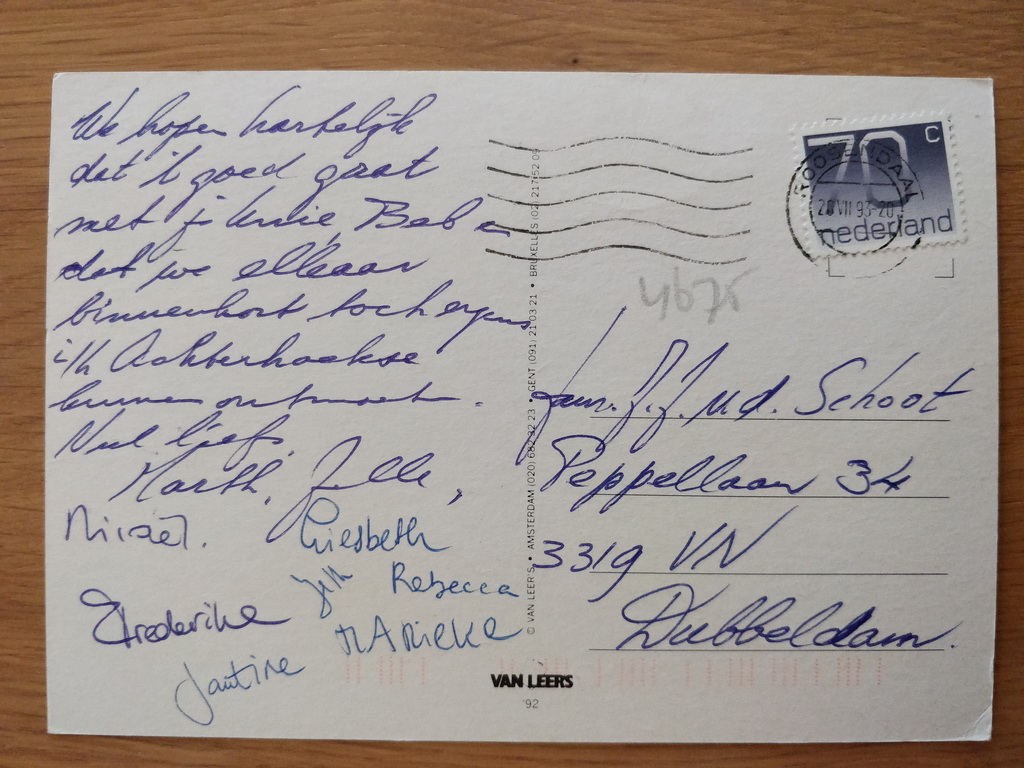 We hopen hartelijk
dat 't goed gaat
met je knie, Bab en
dat we elkaar
binnenkort toch ergens
i/h Achterhoekse
kunnen ontmoeten.
Veel liefs,
Marth, Jelle,
Michiel.
Liesbeth
Jelle
Rebecca
Frederike
MARIEKE
Jantine
VAN LEERS
'92
© VAN LEER'S • AMSTERDAM (020) 682 32 23 • GENT (091) 21 03 21 • BRUXELLES (02) 217 52 09
70 C
nederland
ROOSENDAAL
20 VII 93-20
4675
Fam. J.J. v.d. Schoot
Peppellaan 34
3319 VN
Dubbeldam.